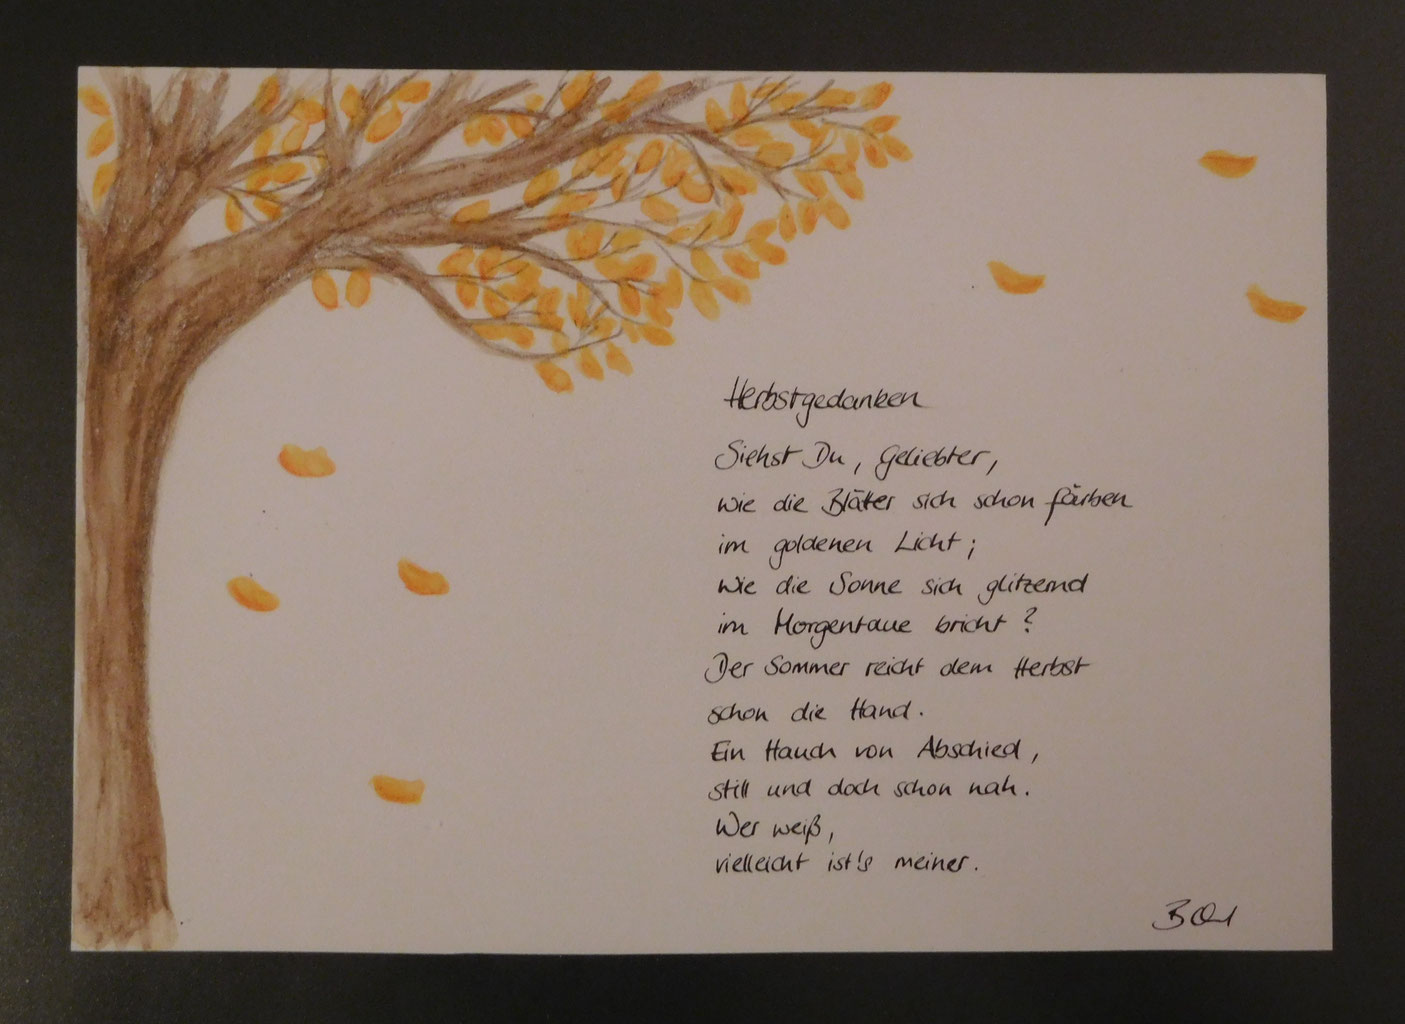 Herbstgedanken
Siehst Du, Geliebter,
wie die Blätter sich schon färben
im goldenen Licht;
wie die Sonne sich glitzernd
im Morgentaue bricht?
Der Sommer reicht dem Herbst
schon die Hand.
Ein Hauch von Abschied,
still und doch schon nah.
Wer weiß,
vielleicht ist's meiner.